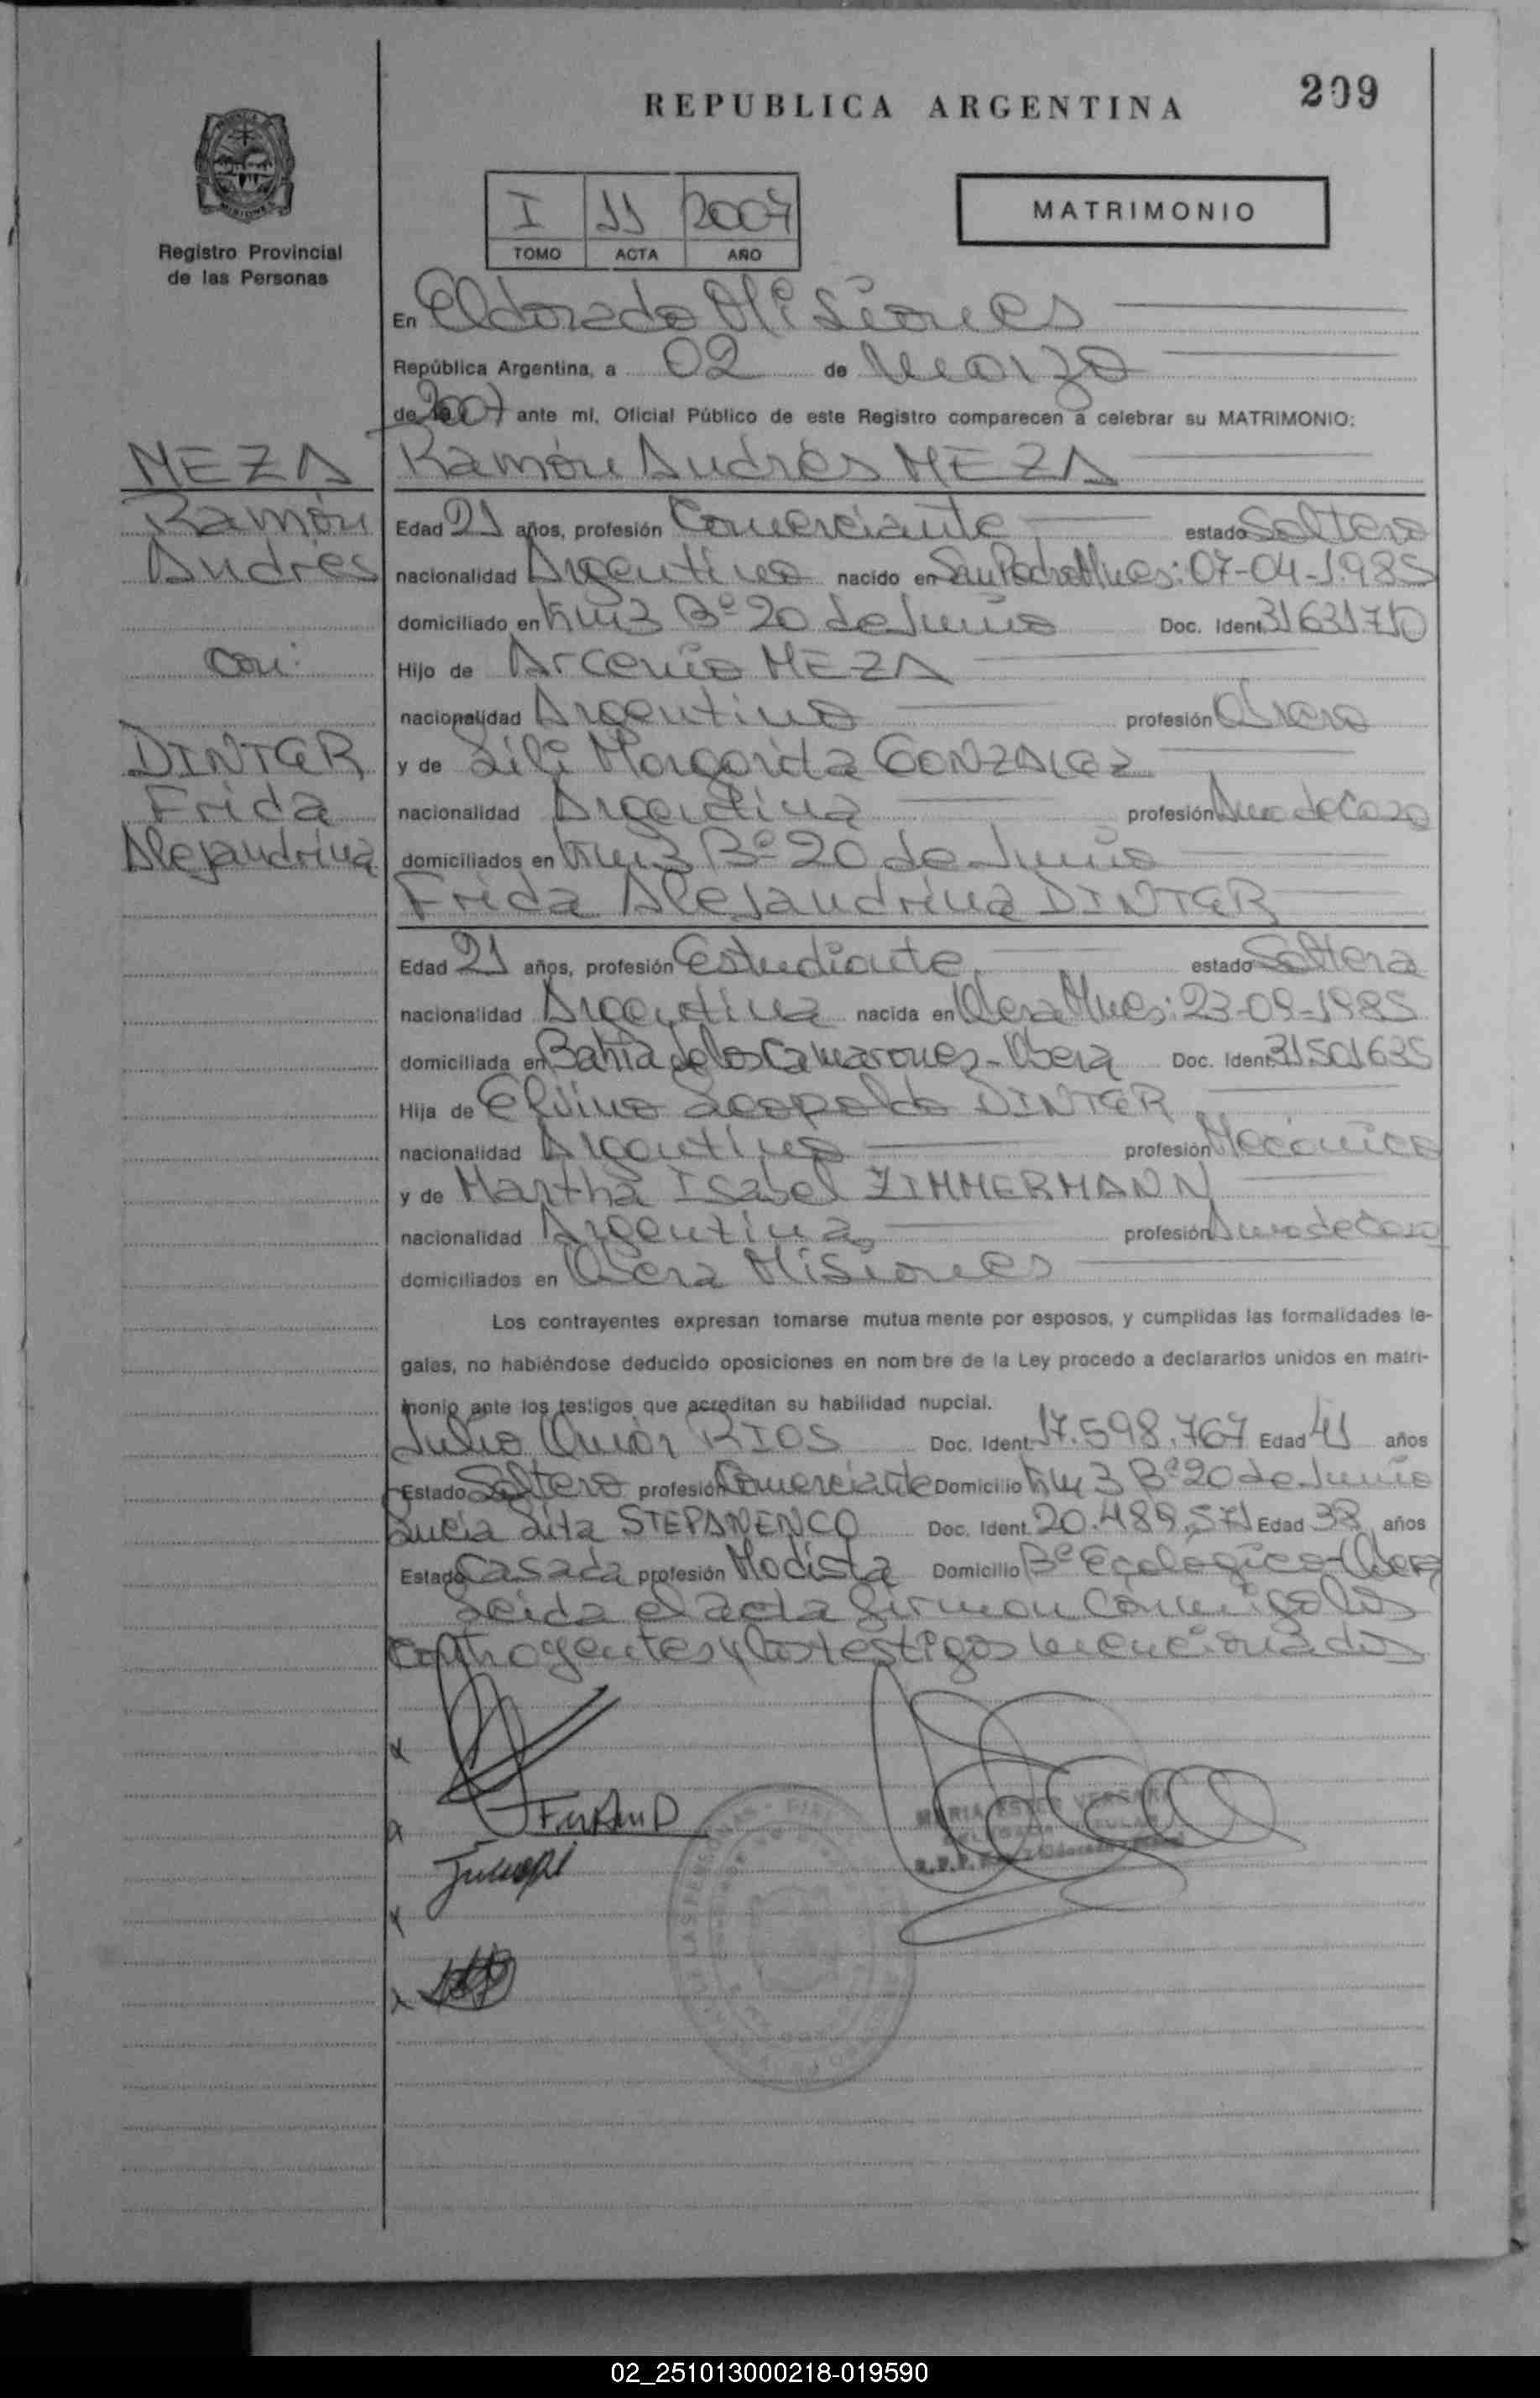 209
REPUBLICA ARGENTINA
Registro Provincial
de las Personas
I 11 2007
TOMO ACTA AÑO
MATRIMONIO
En Eldorado Misiones
República Argentina, a 02 de Marzo
de 2007 ante mí, Oficial Público de este Registro comparecen a celebrar su MATRIMONIO:
MEZA
Ramón
Andrés
con:
DINTER
Frida
Alejandrina
Ramón Andrés MEZA
Edad 21 años, profesión Comerciante estado Soltero
nacionalidad Argentino nacido en San Pedro Mnes: 07-04-1985
domiciliado en Km 3 Bº 20 de Junio Doc. Ident. 31631710
Hijo de Arcenio MEZA
nacionalidad Argentino profesión Obrero
y de Lili Margarita GONZALEZ
nacionalidad Argentina profesión Ama de Casa
domiciliados en Km 3 Bº 20 de Junio
Frida Alejandrina DINTER
Edad 21 años, profesión Estudiante estado Soltera
nacionalidad Argentina nacida en Obera Mnes: 23-09-1985
domiciliada en Bahía de los Camarones - Obera Doc. Ident. 31.501635
Hija de Elvino Leopoldo DINTER
nacionalidad Argentino profesión Mecánico
y de Martha Isabel ZIMMERMANN
nacionalidad Argentina profesión Ama de Casa
domiciliados en Obera Misiones
Los contrayentes expresan tomarse mutua mente por esposos, y cumplidas las formalidades le-
gales, no habiéndose deducido oposiciones en nom bre de la Ley procedo a declararlos unidos en matri-
monio ante los testigos que acreditan su habilidad nupcial.
Julio RIOS Doc. Ident. 17.598.767 Edad 41 años
Estado Soltero profesión Comerciante Domicilio Km 3 Bº 20 de Junio
Lucia Lita STEPANENCO Doc. Ident. 20.489.571 Edad 38 años
Estado Casada profesión Modista Domicilio Bº Ecologico - Obera
Leida el acta firman conmigo los
contrayentes y los testigos mencionados
MARIA ESTER VERGARA
02_251013000218-019590